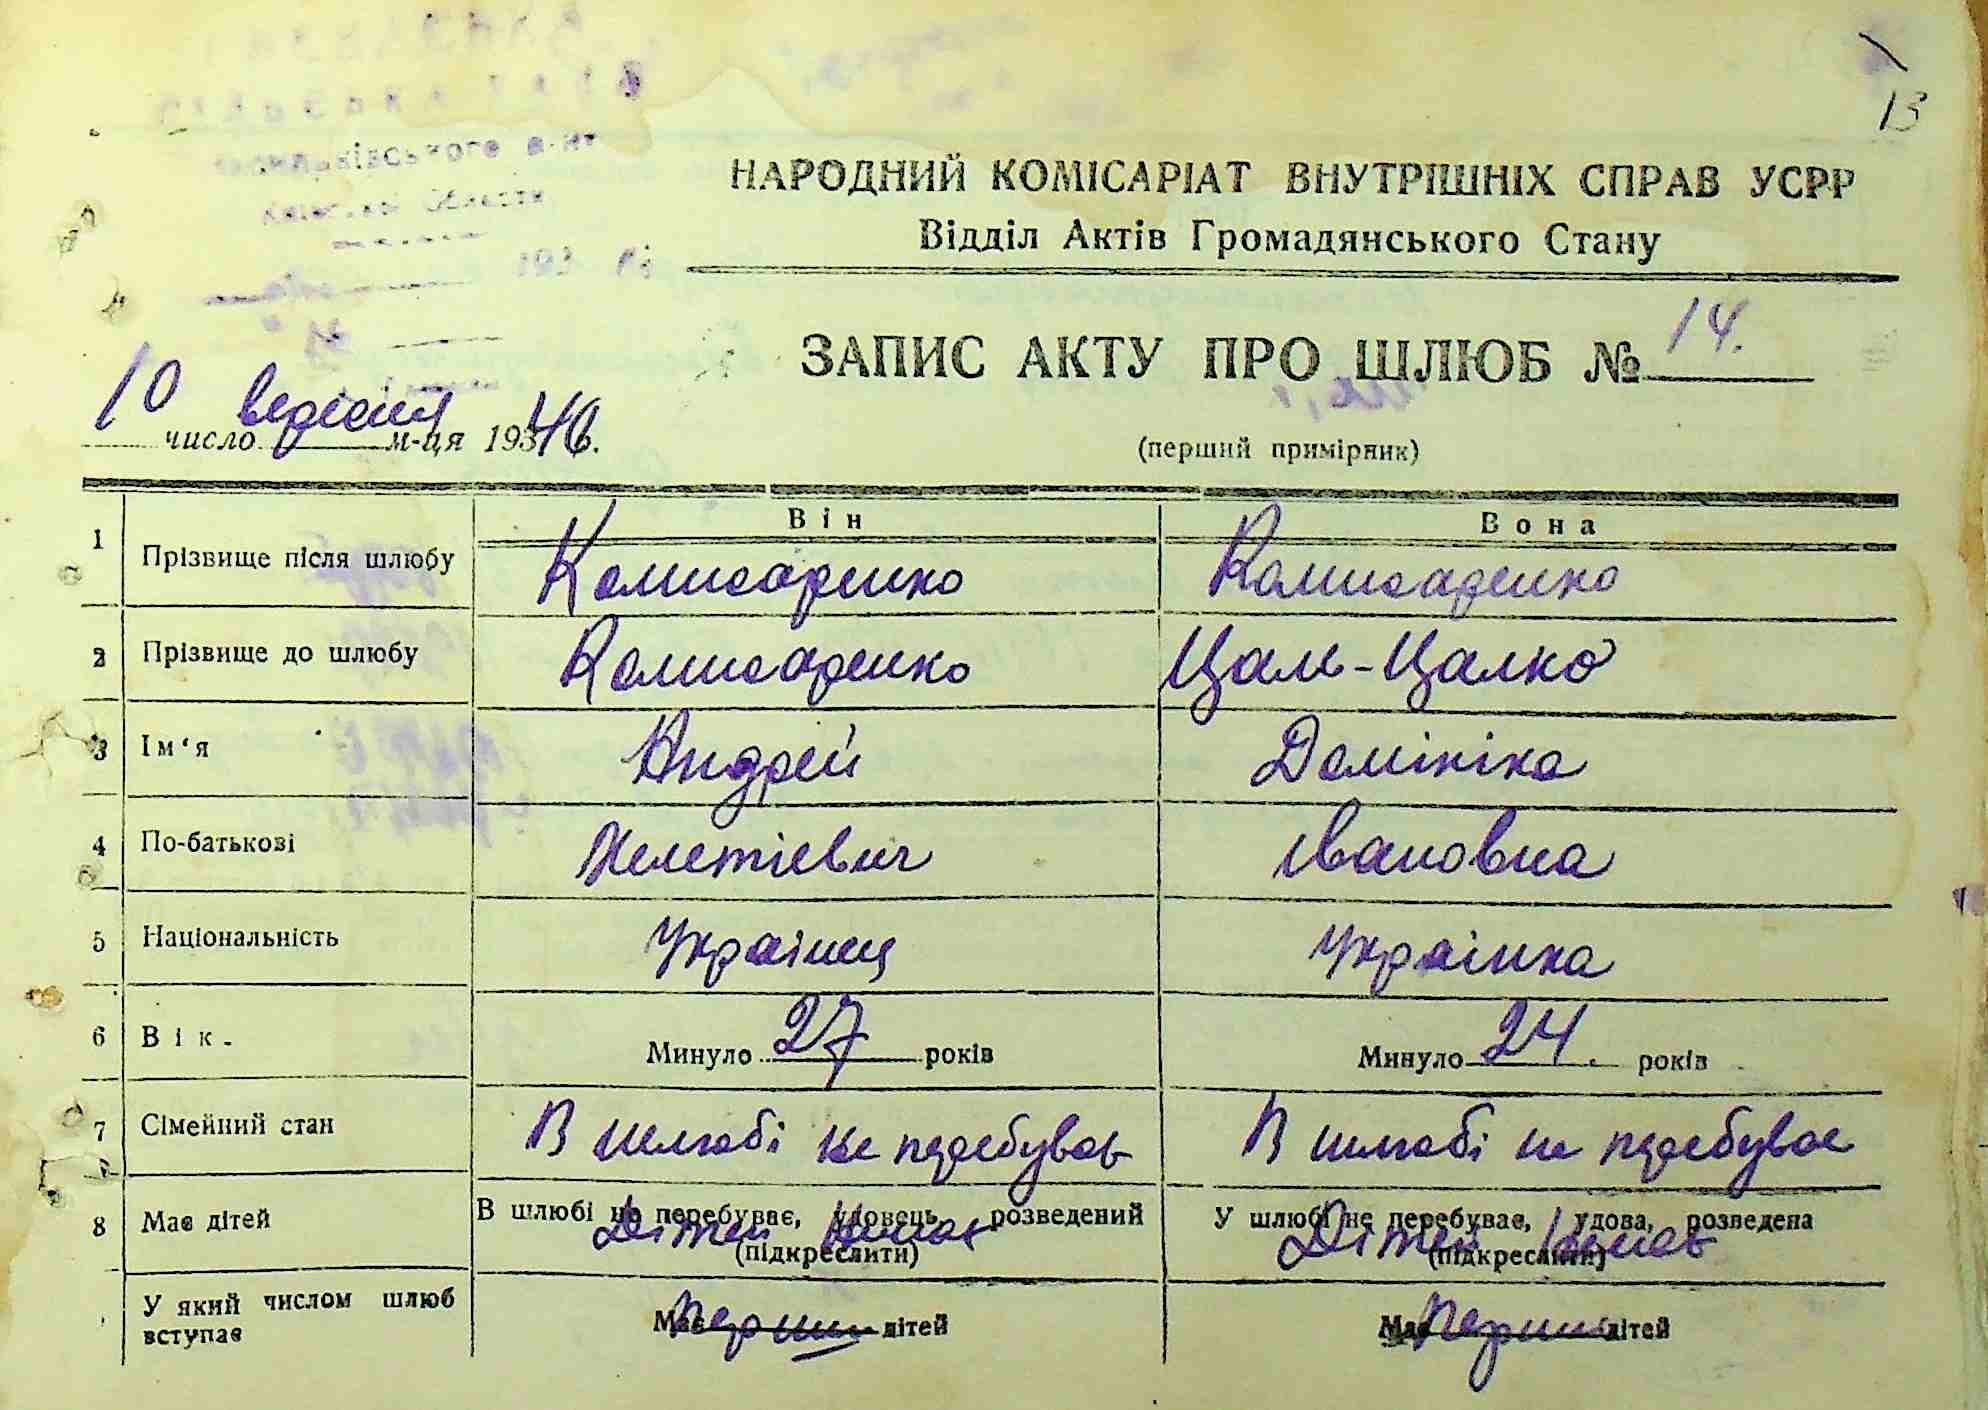 13
НАРОДНИЙ КОМІСАРІАТ ВНУТРІШНІХ СПРАВ УСРР
Відділ Актів Громадянського Стану
ЗАПИС АКТУ ПРО ШЛЮБ № 14.
10 число вересня м-ця 1940.
(перший примірник)
Він Вона
1 Прізвище після шлюбу Комисаренко Комисаренко
2 Прізвище до шлюбу Комисаренко Цаль-Цалко
3 Ім'я Андрей Домініка
4 По-батькові Мелетіевич Івановна
5 Національність Украінец Украінка
6 Вік. Минуло 27 років Минуло 24. років
7 Сімейний стан В шлюбі не перебував В шлюбі не перебувае
8 Має дітей В шлюбі не перебуває, удовець, розведений У шлюбі не перебуває, удова, розведена
Дітей Немає Дітей Немає
(підкреслити) (підкреслити)
У який числом шлюб вступає Має Перший дітей Має Перший дітей